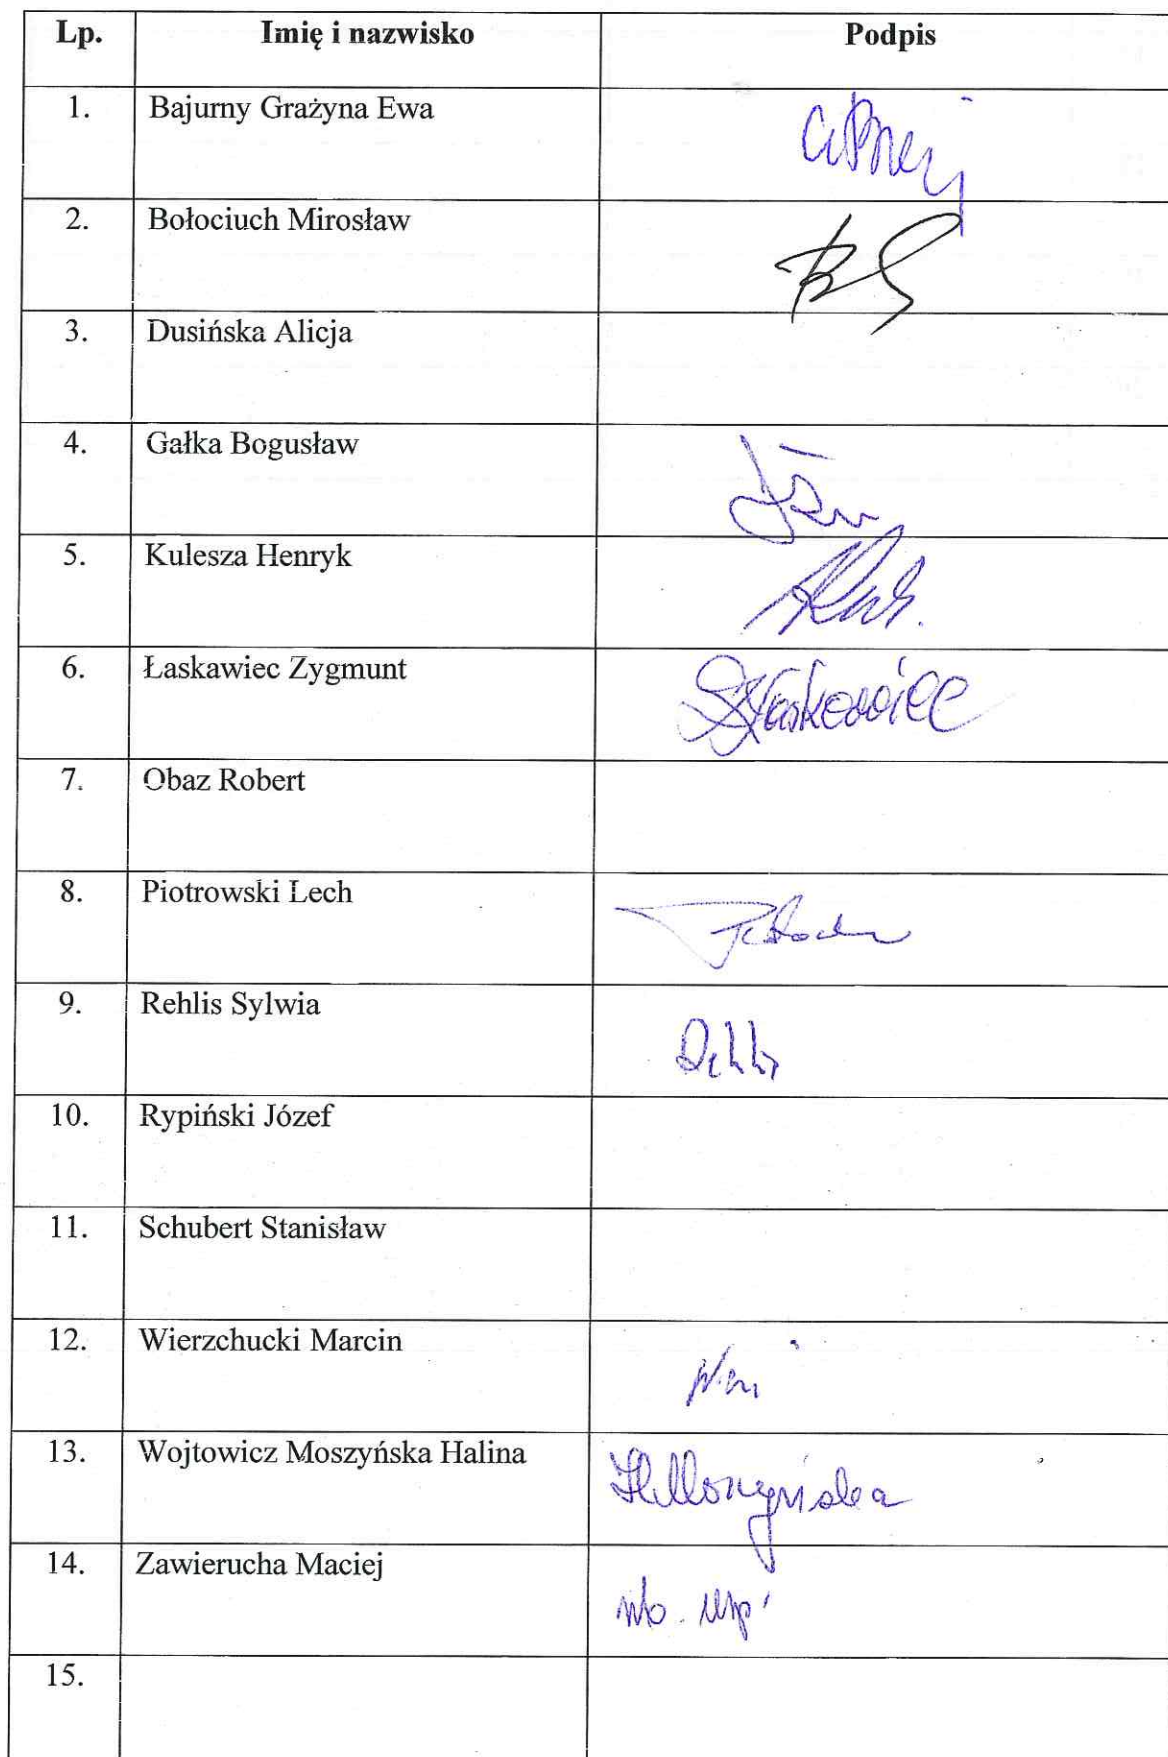 Lp. Imię i nazwisko Podpis
1. Bajurny Grażyna Ewa
2. Bołociuch Mirosław
3. Dusińska Alicja
4. Gałka Bogusław
5. Kulesza Henryk
6. Łaskawiec Zygmunt
7. Obaz Robert
8. Piotrowski Lech
9. Rehlis Sylwia
10. Rypiński Józef
11. Schubert Stanisław
12. Wierzchucki Marcin
13. Wojtowicz Moszyńska Halina
14. Zawierucha Maciej
15.